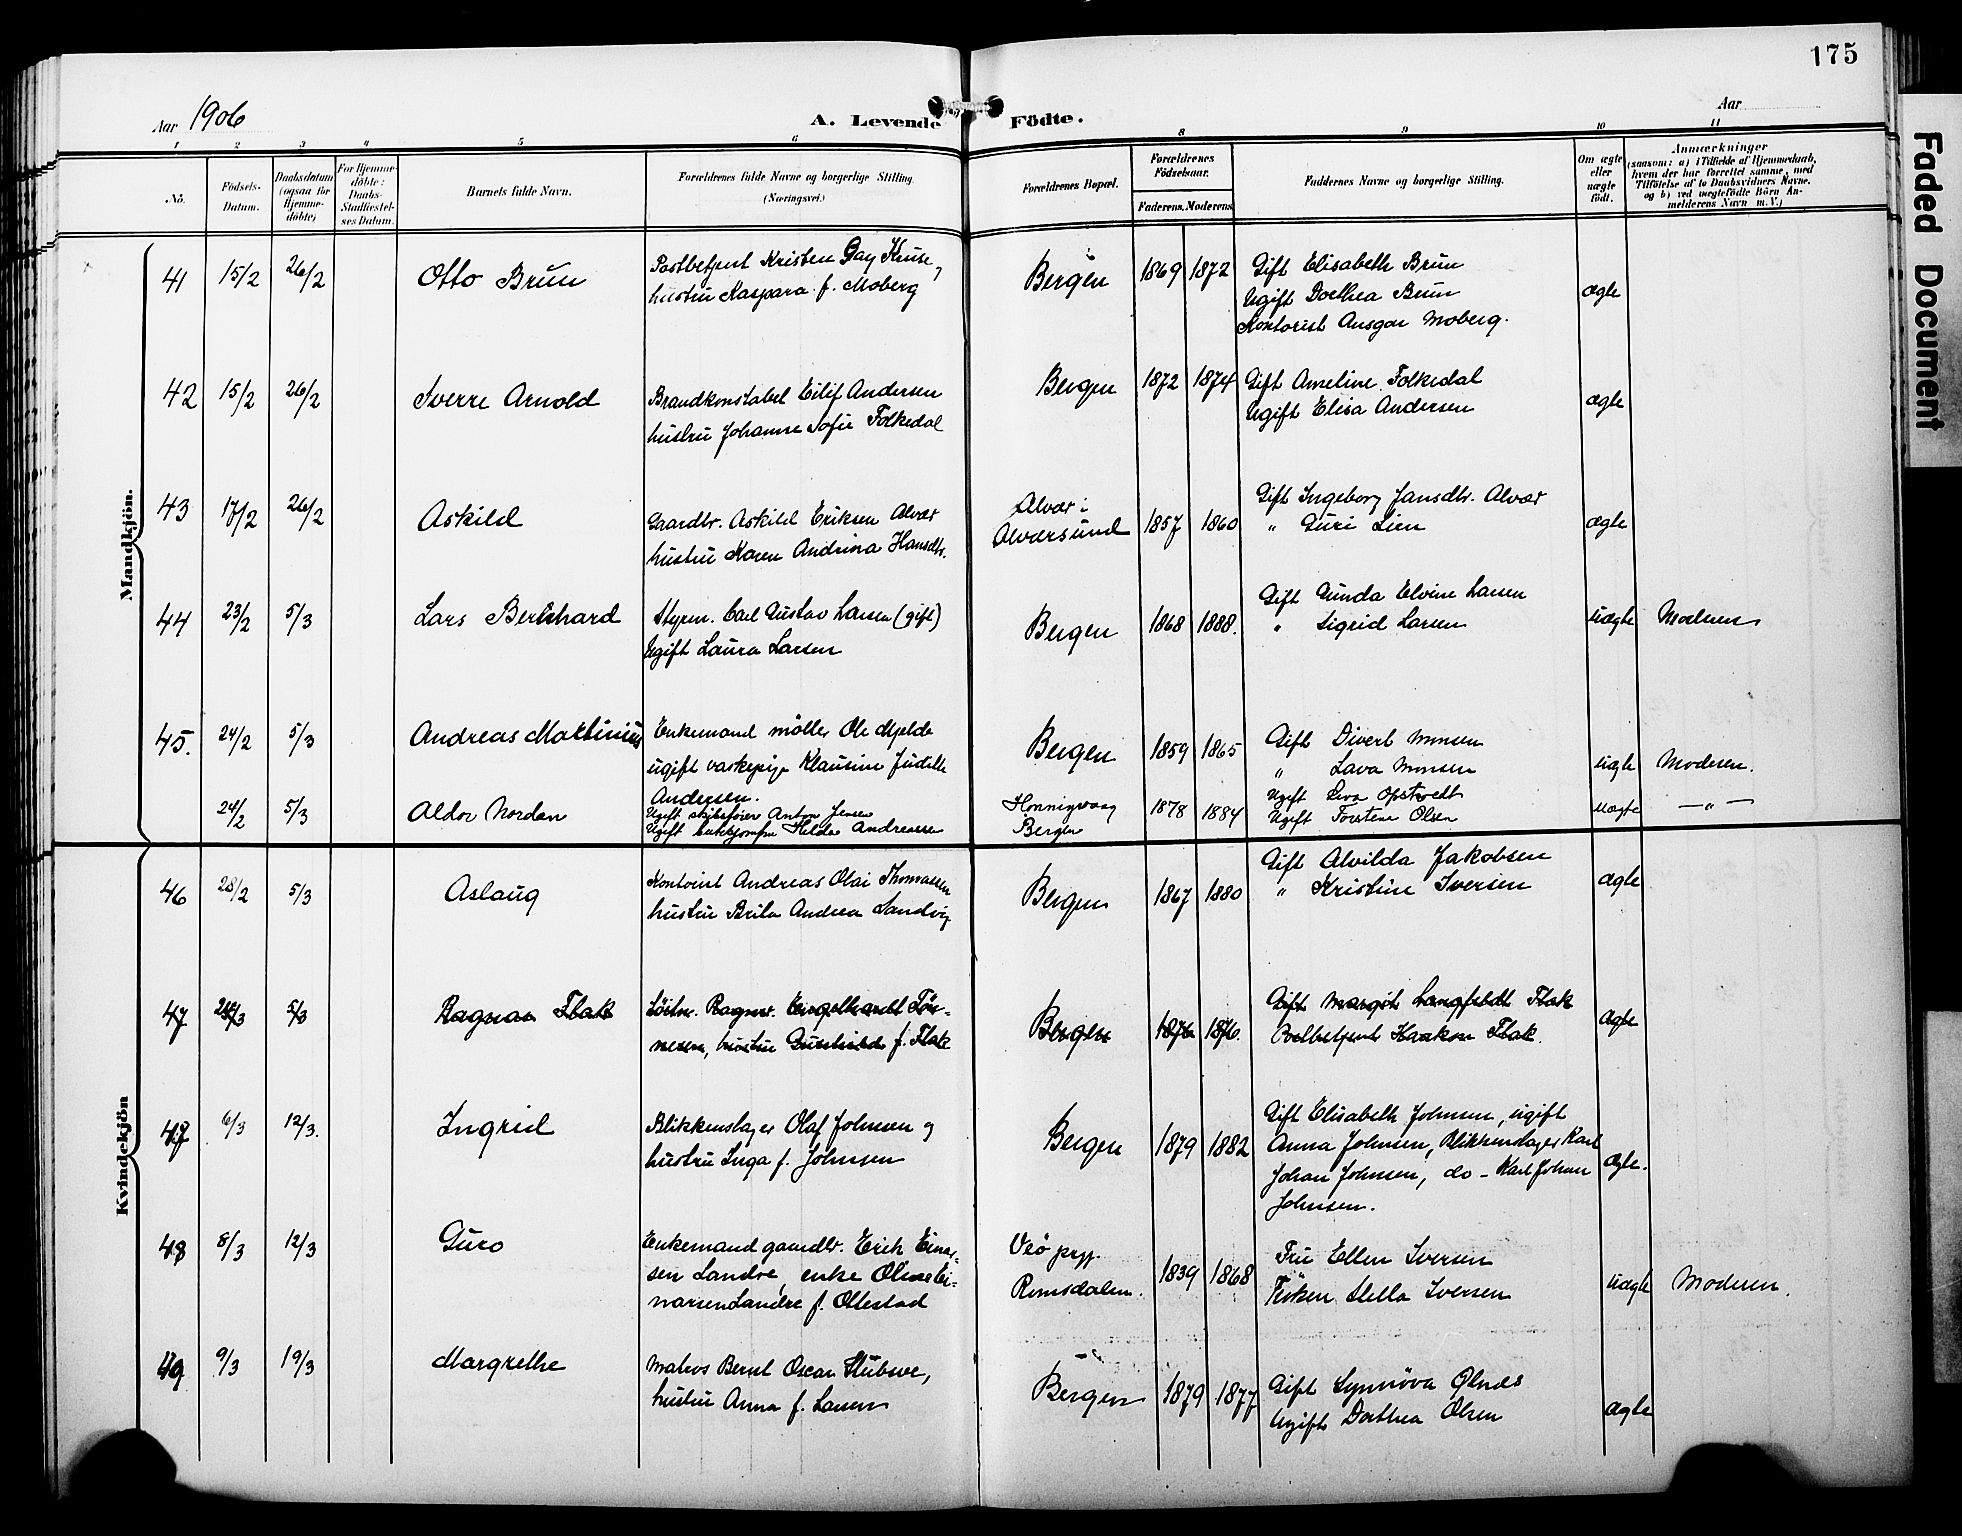 175
Aar 1906
A. Levende Födte.
Aar
1 2 3 4 5 6 8 9 10 11
No.
Födsels-Datum.
Daabsdatum (ogsaa for Hjemme-döbte)
For Hjemme-döbte: Daabs-Stadfæstel-ses Datum.
Barnets fulde Navn.
Forældrenes fulde Navne og borgerlige Stilling. (Næringsvei.)
Forældrenes Bopæl.
Forældrenes Födselsaar.
Faderens. Moderens.
Faddernes Navne og borgerlige Stilling.
Om ægte eller uægte født.
Anmærkninger
(saasom: a) i Tilfælde af Hjemmedaab, hvem der har forrettet samme, med Tilföielse af to Daabsvidners Navne, og b) ved uægtefödte Börn An-melderens Navn m. V.)
Mandkjön.
41 15/2 26/2 Otto Brun
Postbetjent Kristen Gay Kruse,
hustru Kaspara f. Moberg
Bergen 1869 1872
Gift Elisabeth Brun
Ugift Dorthea Brun
Kontorist Ansgar Moberg.
ægte
42 15/2 26/2 Sverre Arnold
Brandkonstabel Eilif Andersen
hustru Johanne Sofie Folkedal
Bergen 1872 1874
Gift Ameline Folkedal
Ugift Elisa Andersen
ægte
43 17/2 26/2 Askild
Gaardbr. Askild Eriksen Alvær
hustru Karen Andrina Hansdtr.
Alvær i
Alversund 1857 1860
Gift Ingeborg Jansdtr. Alvær
" Guri Lien
ægte
44 23/2 5/3 Lars Bernhard
Styrm. Carl Gustav Larsen (gift)
Ugift Laura Larsen
Bergen 1868 1888.
Gift Gunda Elvine Larsen
" Sigrid Larsen
uægte Moderen
45. 24/2 5/3 Andreas Martinius
Enkemand möller Ole Mjelde
ugift vaskepige Klausine Judithe
Andersen.
Bergen 1859 1865
Gift Divert Monsen
" Lava Monsen
uægte Moderen.
24/2 5/3 Aldor Nordan
Ugift skibsfører Anton Jensen
Ugift butikjomfru Hilda Andreassen
Honningvaag
Bergen 1878 1884
Ugift Opstvedt
Ugift Torstene Olsen
uægte — " —
Kvindekjön
46 28/2 5/3 Aslaug
Kontorist Andreas Olai Thomassen
hustru Brita Andrea Landvig
Bergen 1867 1880
Gift Alvilda Jakobsen
" Kristine Iversen
ægte
47 5/3 Ragnar Flak
Ragnv. Engelhardt Tön-
nesen, hustru f. Flak
Bergen 1876 1876.
Gift Margit Langfeldt Flak
Haakon Flak.
ægte
47 6/3 12/3. Ingrid
Blikkenslager Olaf Johnsen og
hustru Inga f. Johnsen
Bergen 1879 1882
Gift Elisabeth Johnsen, ugift
Anna Johnsen, Blikkenslager Karl
Johan Johnsen, do - Karl Johan
Johnsen.
ægte.
48 8/3 12/3 Guro
Enkemand gaardbr. Erik Einar-
sen Landre, enke Oline Ei-
narsen Landre f. Ottestad
Veö prgj.
Romsdalen. 1839 1868
Fru Ellen Iversen
Fröken Stella Iversen
uægte Moderen.
49 9/3 19/3 Margrethe
Matros Bernt Oscar Stubsve,
hustru Anna f. Larsen
Bergen 1879 1877
Gift Synnöva
Ugift Dorthea Olsen
ægte
Faded Document